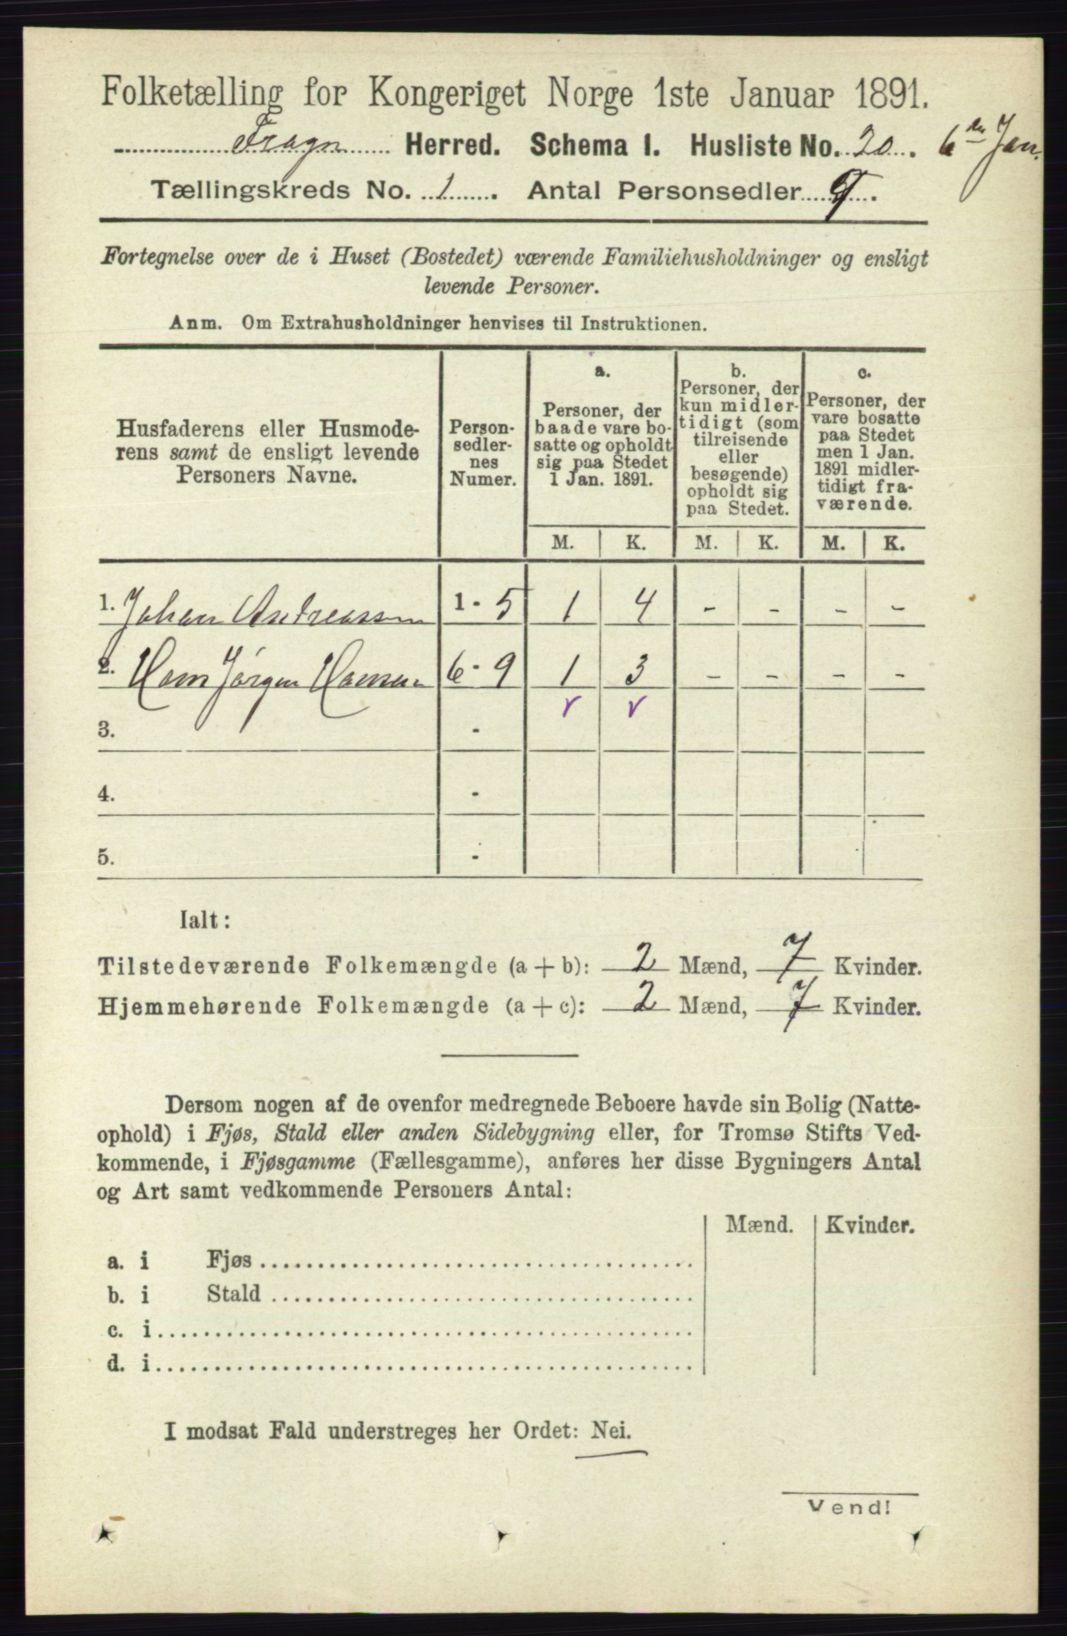 Folketælling for Kongeriget Norge 1ste Januar 1891.
Frogn Herred. Schema I. Husliste No. 20. 6te Jan.
Tællingskreds No. 1. Antal Personsedler 9.
Fortegnelse over de i Huset (Bostedet) værende Familiehusholdninger og ensligt
levende Personer.
Anm. Om Extrahusholdninger henvises til Instruktionen.
Husfaderens eller Husmode-
rens samt de ensligt levende
Personers Navne.
Person-
sedler-
nes
Numer.
a.
Personer, der
baade vare bo-
satte og opholdt
sig paa Stedet
1 Jan. 1891.
b.
Personer, der
kun midler-
tidigt (som
tilreisende
eller
besøgende)
opholdt sig
paa Stedet.
c.
Personer, der
vare bosatte
paa Stedet
men 1 Jan.
1891 midler-
tidigt fra-
værende.
M. K. M. K. M. K.
1. Johan Andreassen 1 - 5 1 4 - - - -
2. Hans Jørgen Hansen 6 - 9 1 3 - - - -
v v
3. -
4. -
5. -
Ialt:
Tilstedeværende Folkemængde (a + b): 2 Mænd, 7 Kvinder.
Hjemmehørende Folkemængde (a + c): 2 Mænd, 7 Kvinder.
Dersom nogen af de ovenfor medregnede Beboere havde sin Bolig (Natte-
ophold) i Fjøs, Stald eller anden Sidebygning eller, for Tromsø Stifts Ved-
kommende, i Fjøsgamme (Fællesgamme), anføres her disse Bygningers Antal
og Art samt vedkommende Personers Antal:
Mænd. Kvinder.
a. i Fjøs
b. i Stald
c. i
d. i
I modsat Fald understreges her Ordet: Nei.
Vend!